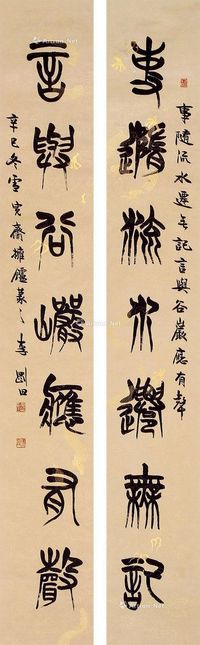 事隨流水遷無記
事隨流水遷无記言與谷巖應有聲
言與谷巖應有聲
辛巳冬雪齋擁爐篆之李剛田